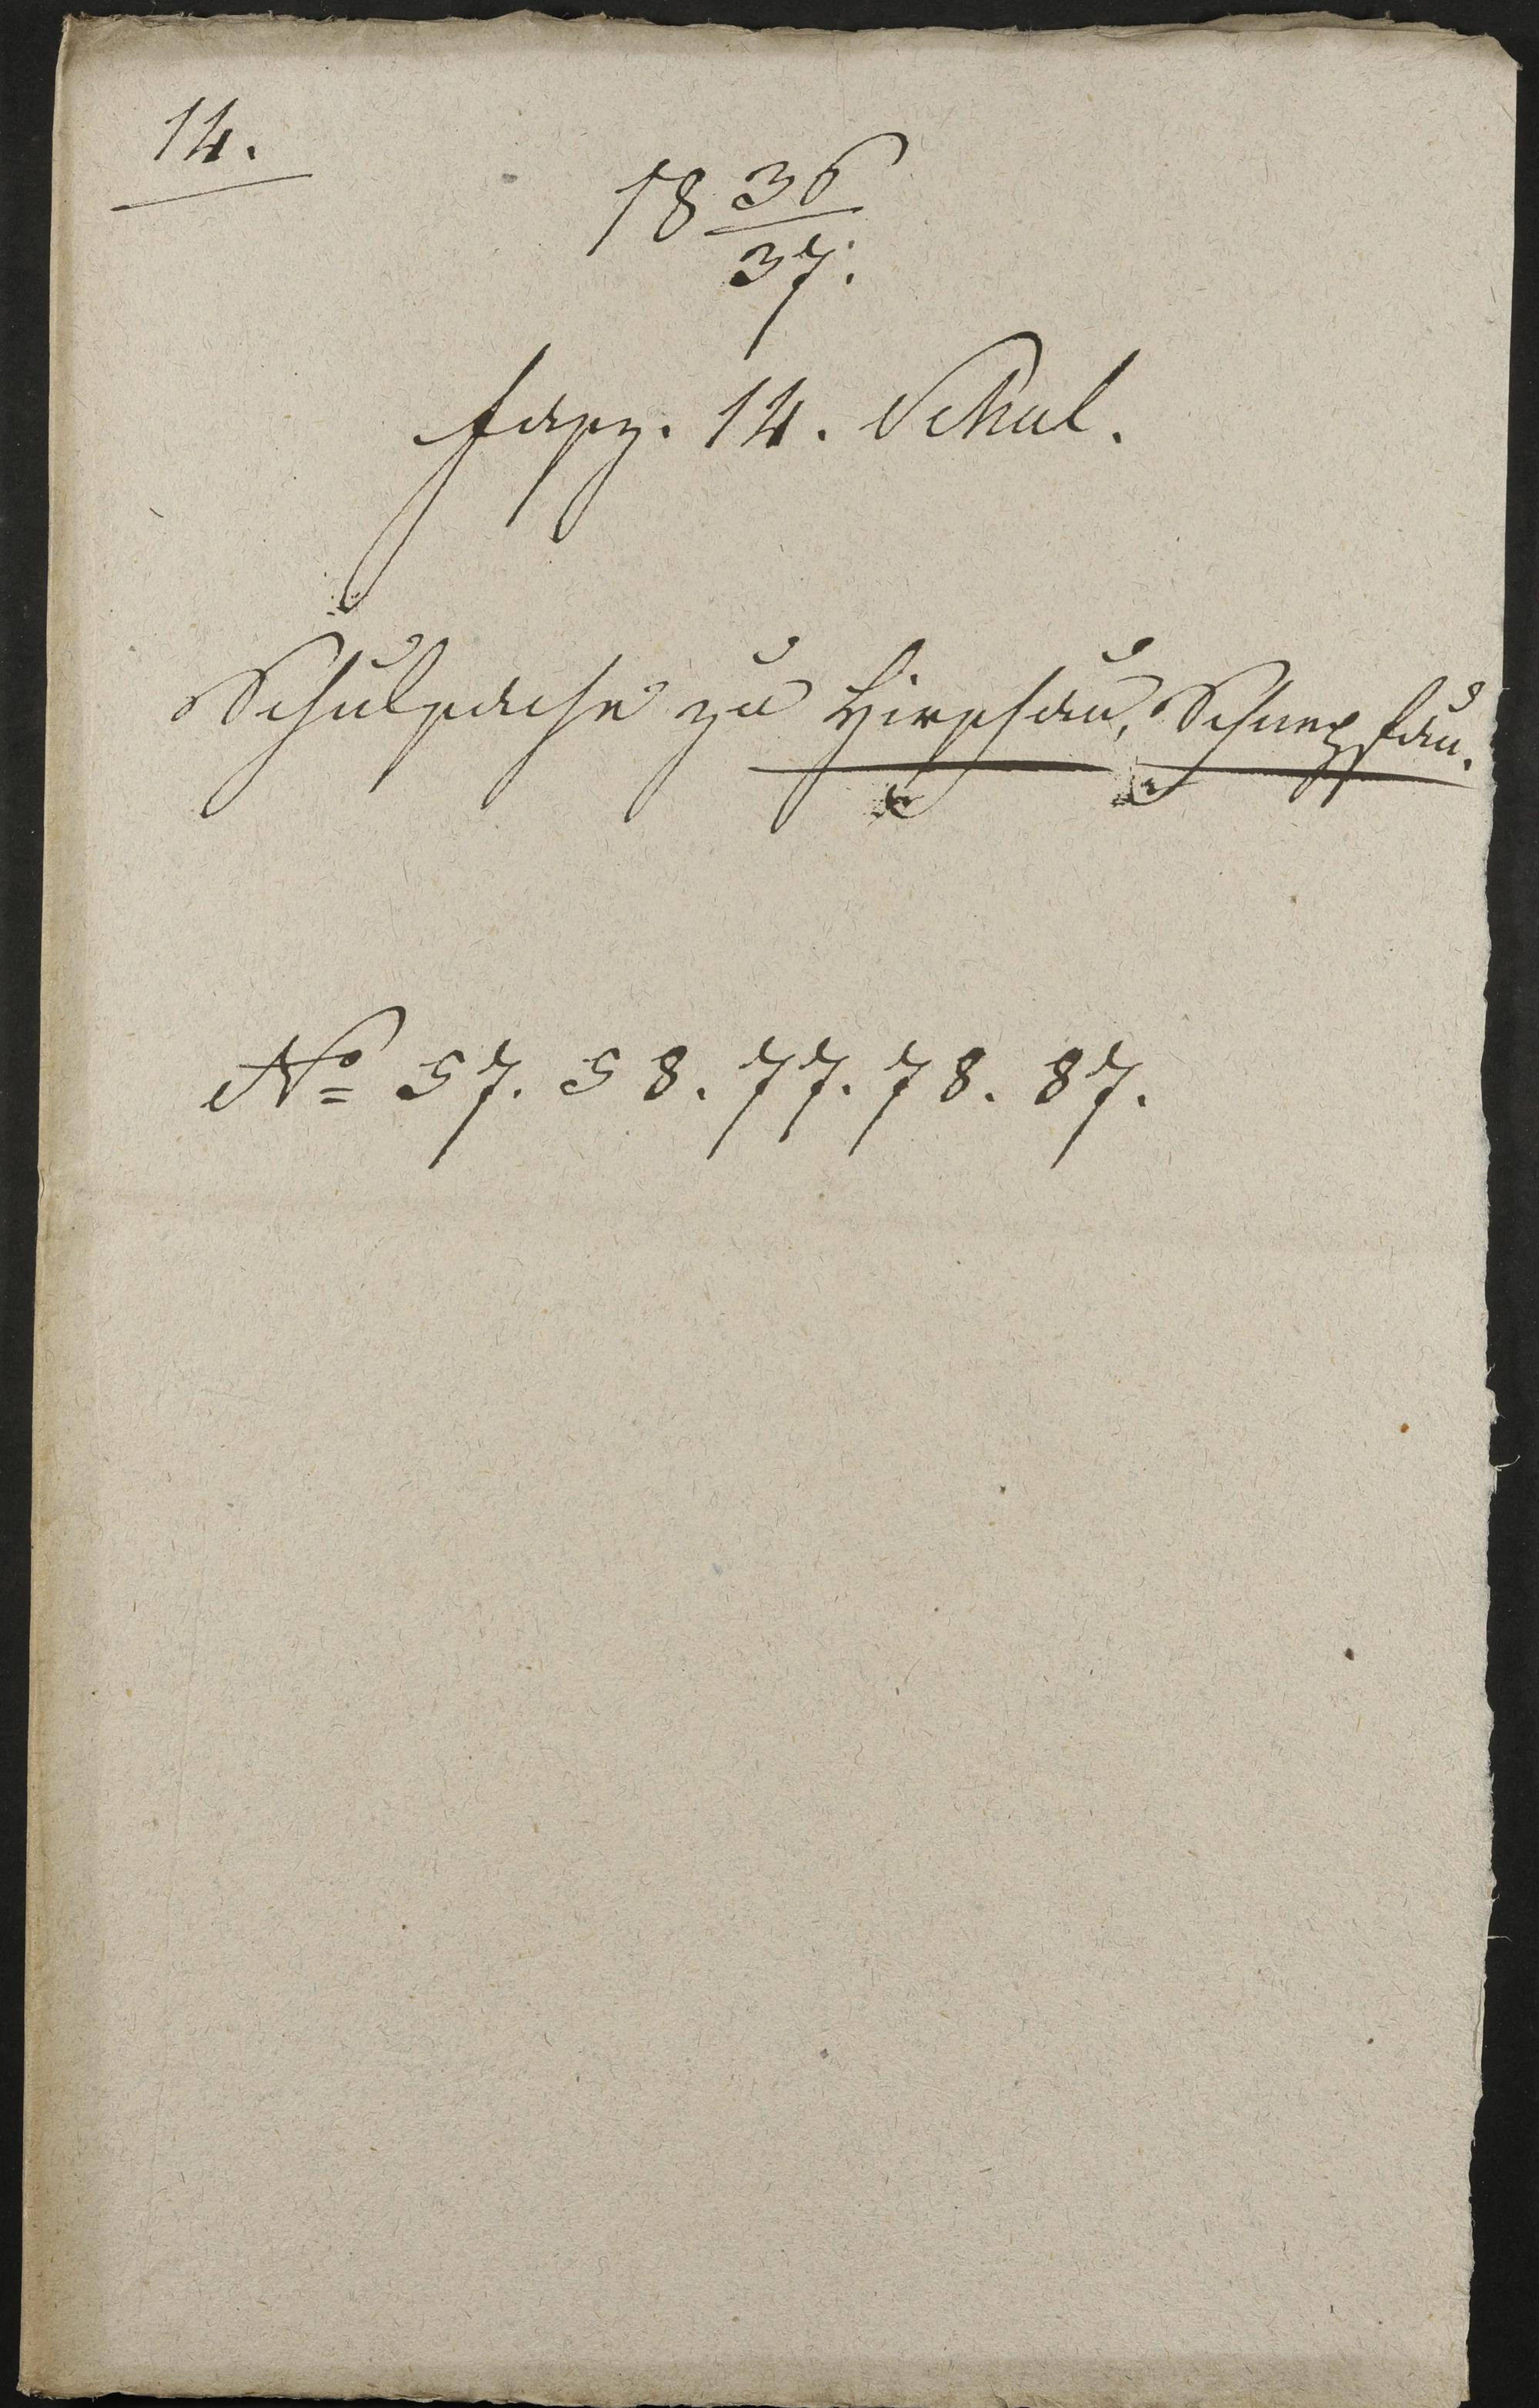 14.
18 36/37.
fasz. 14. Schul.
Schulsache zu Hirschau, Schnepfau.
No 57. 58. 77. 78. 87.